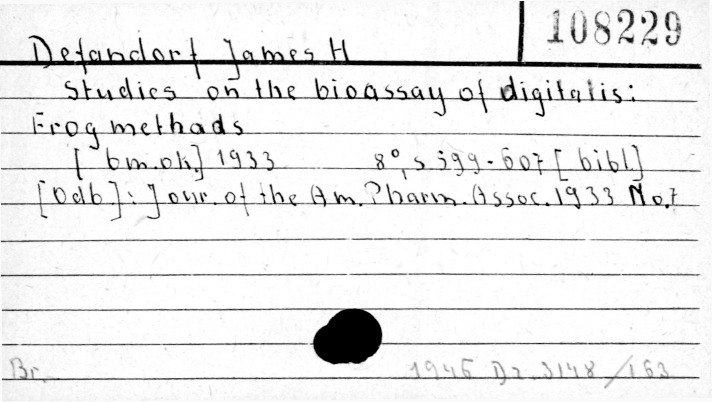 108229
Defandorf James H
Studies on the bioassay of digitalis:
Frog methods
[bm.ok.] 1933 8°, s 599-607 [bibl.]
[Odb]: Jour. of the Am. Pharm. Assoc. 1933 No.7
Br. 1946 Dz. 3148/163